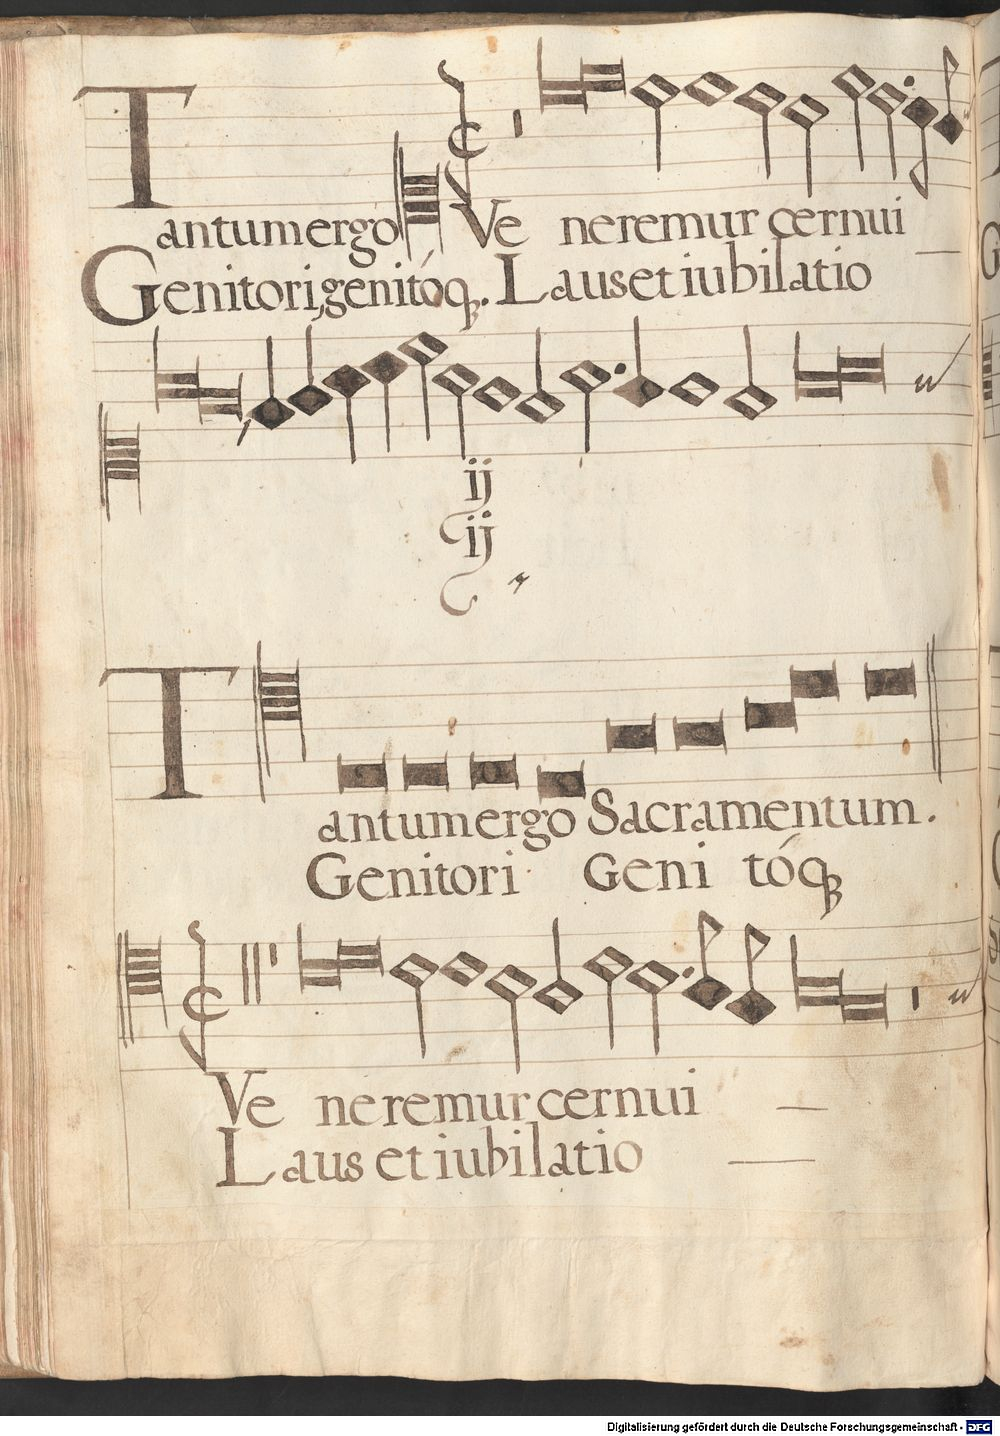 Tantum ergo Ve neremur cernui
Genitori, genitóq3. Laus et iubilatio
ij
ij
Tantum ergo Sacramentum.
Genitori Geni tóq3
Ve neremur cernui
Laus et iubilatio
Digitalisierung gefördert durch die Deutsche Forschungsgemeinschaft - DFG